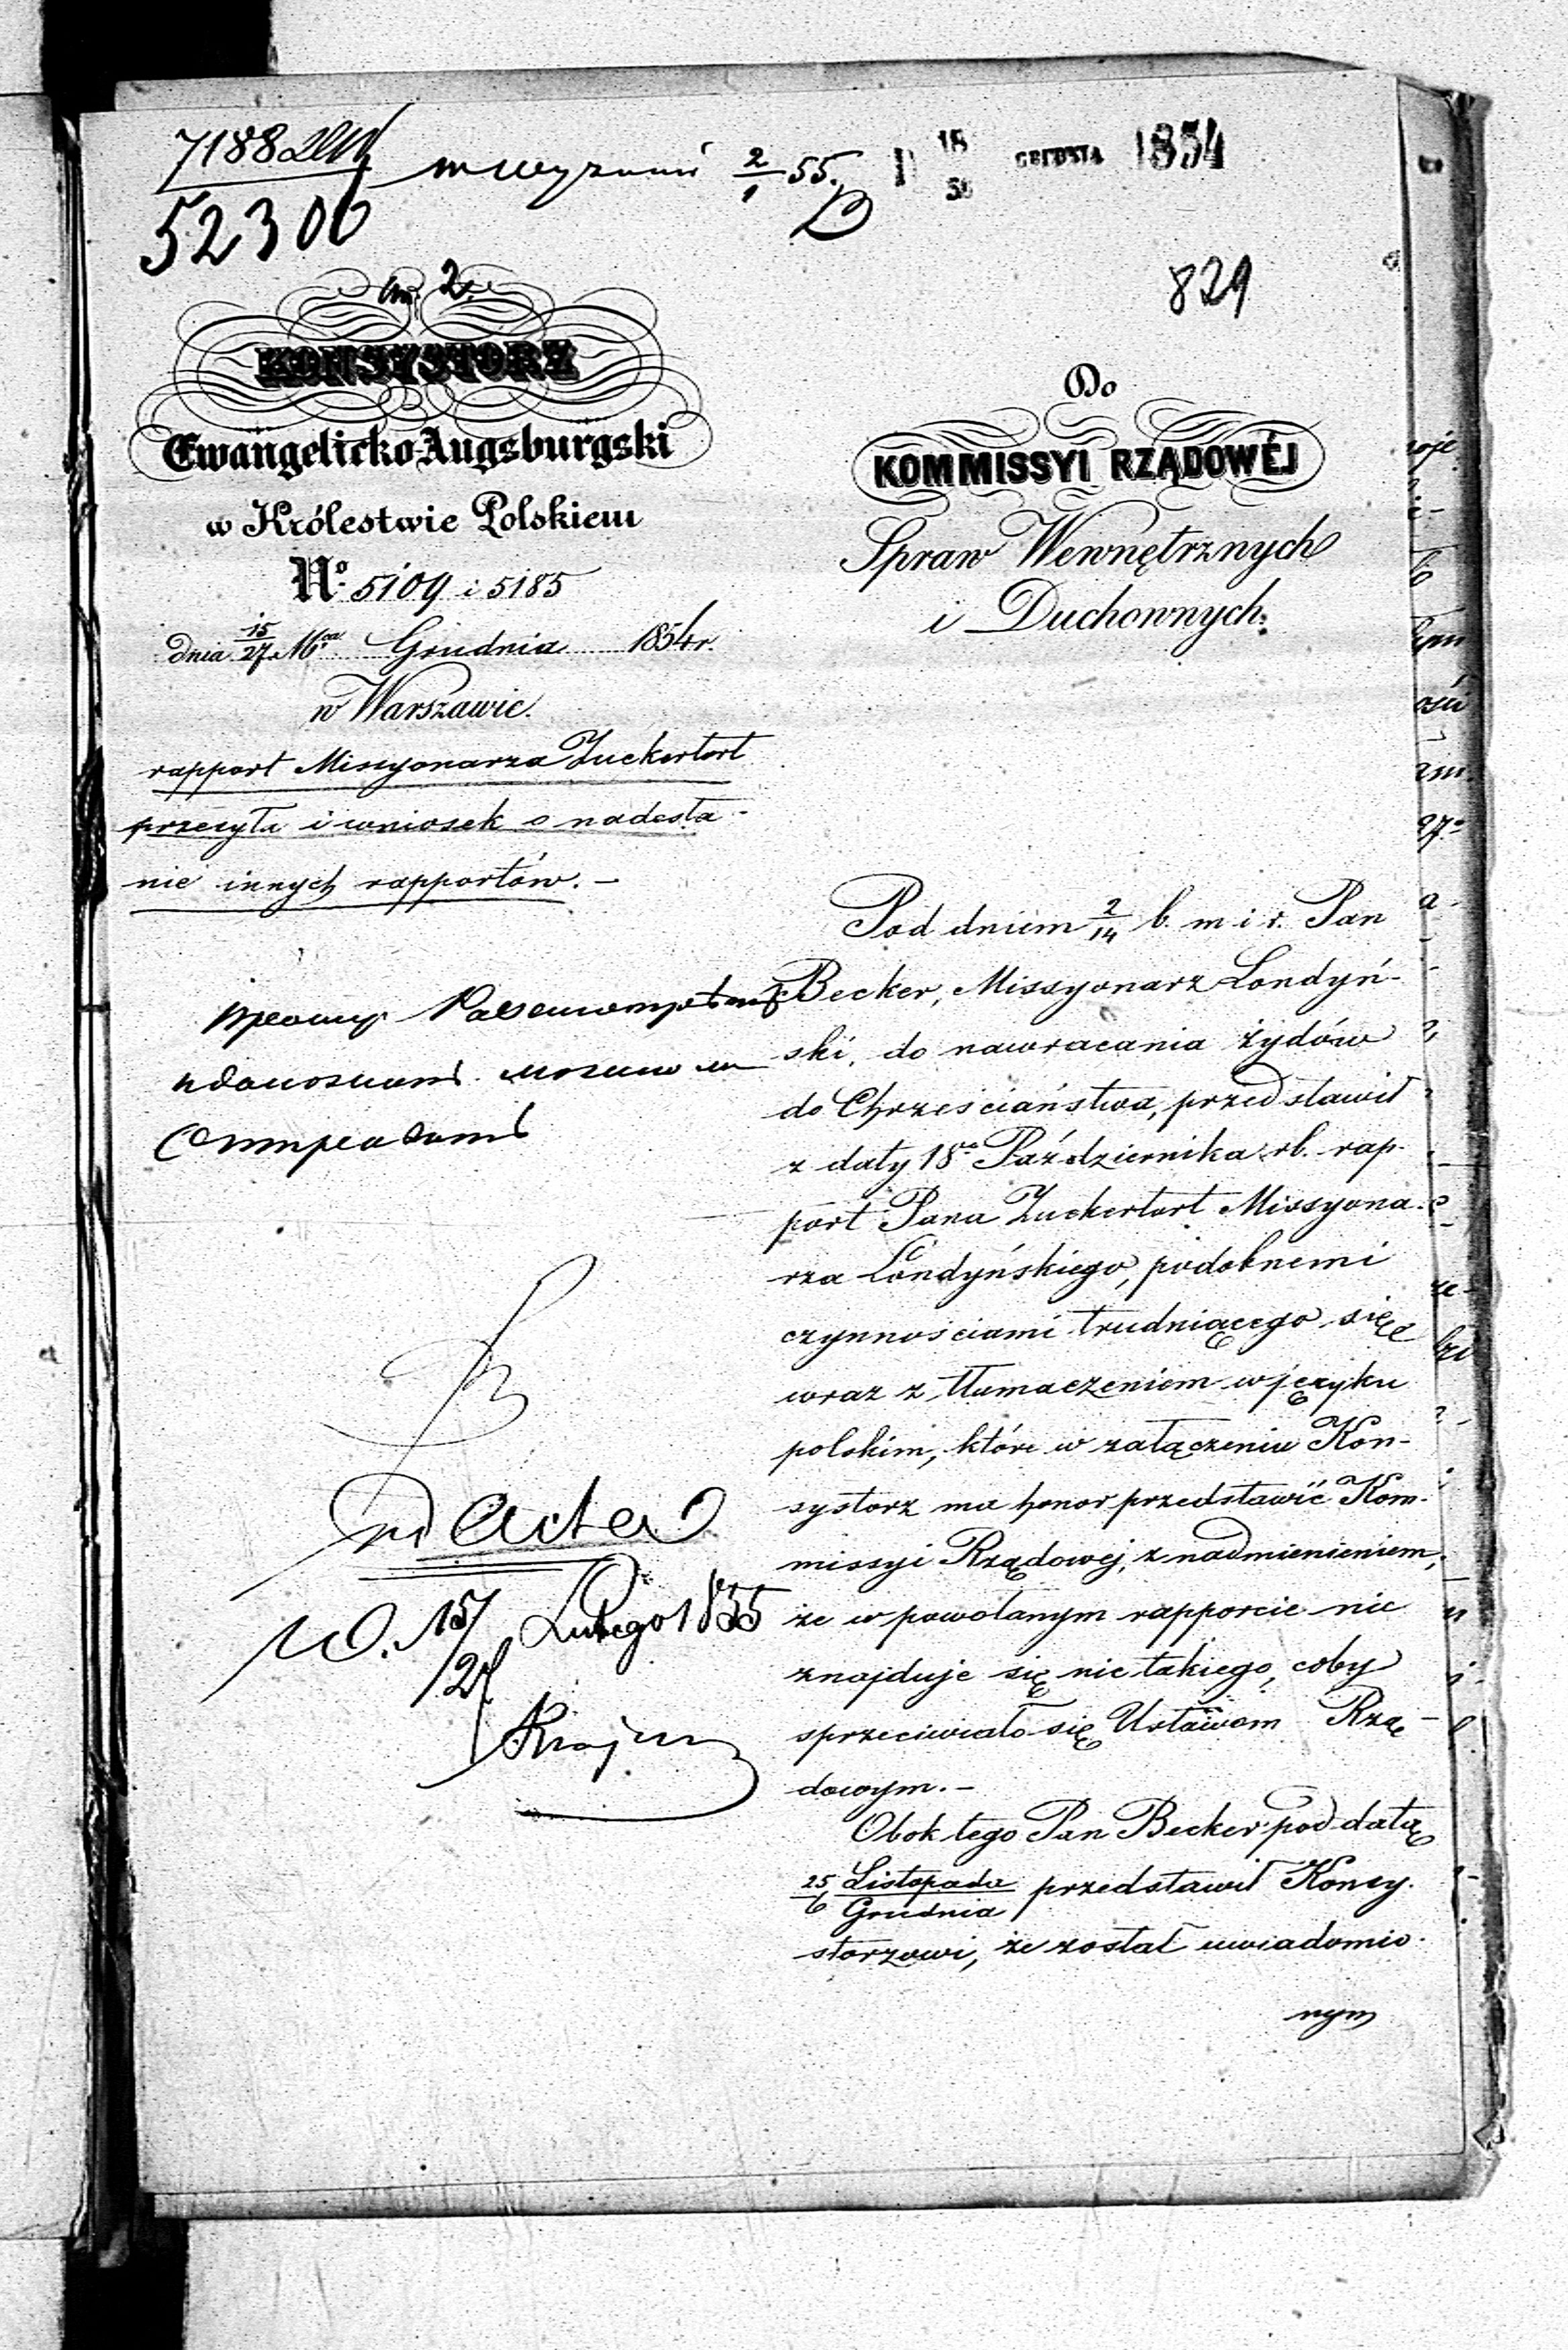 7188
52306
m wyznań 2/1 55.
18
30
GRUDNIA 1854
829
KONSYSTORZ
Ewangelicko-Augsburgski
w Królestwie Polskiem
No. 5109 i 5185
dnia 15/27 Mca Grudnia 1854 r.
w Warszawie.
rapport Missyonarza Zuckertort
przesyła i wniosek o nadesła-
nie innych rapportów. —
Do
KOMMISSYI RZĄDOWÉJ
Spraw Wewnętrznych
i Duchownych.
Pod dniem 2/14 b. m. i r. Pan
Becker, Missyonarz Londyń-
ski, do nawracania żydów
do Chrześciaństwa, przedstawił
z daty 18go Października rb. rap-
port Pana Zuckertort Missyona-
rza Londyńskiego, podobnemi
czynnościami trudniącego się
wraz z tłumaczeniem w języku
polskim, które w załączeniu Kon-
systorz ma honor przedstawić Kom-
missyi Rządowej, z nadmienieniem,
że w powołanym rapporcie nie
znajduje się nic takiego, coby
sprzeciwiało się Ustawom Rzą-
dowym. —
Obok tego Pan Becker pod datą
25 Listopada / 6 Grudnia przedstawił Konsy-
storzowi, że został uwiadomio-
nym
ad Acta
W. 15/27 Lutego 1855